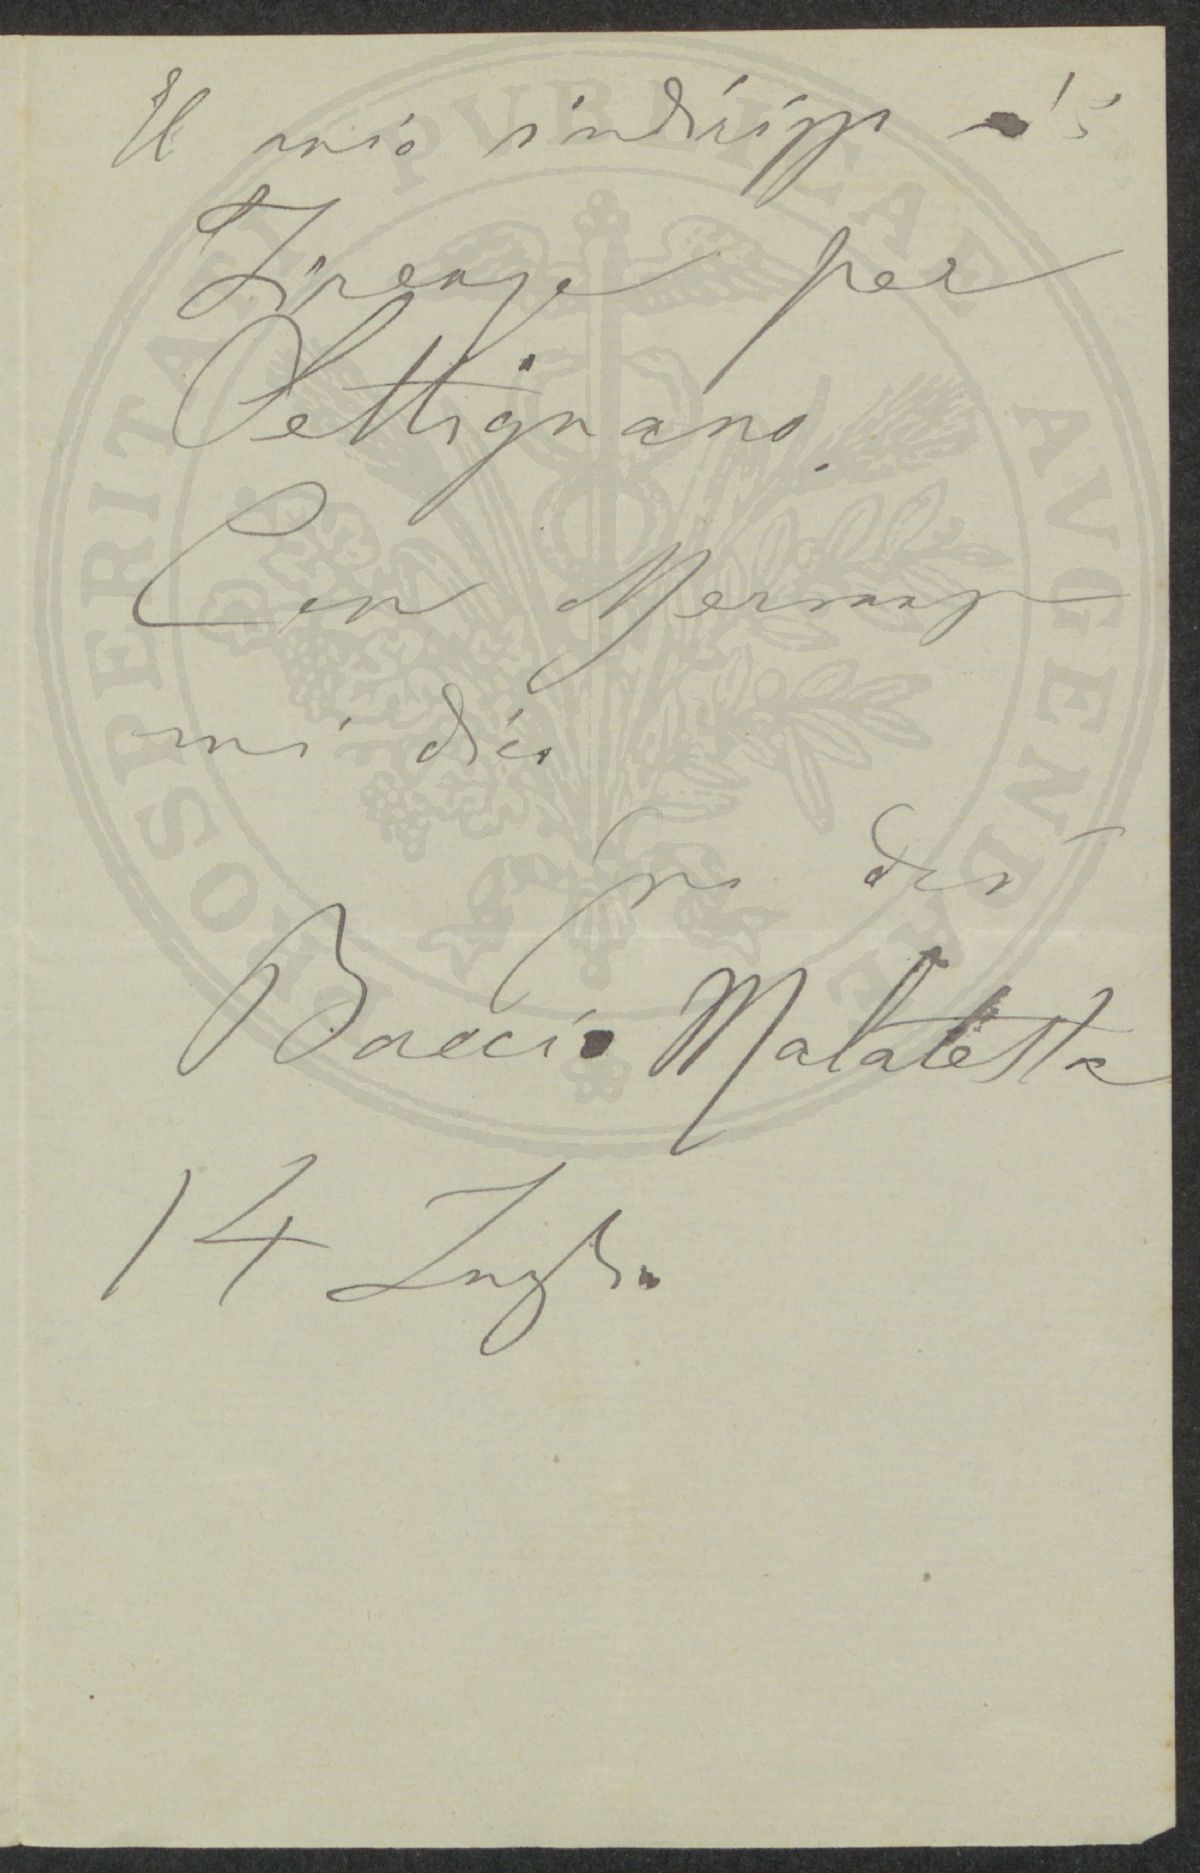 Il mio indirizzo è:
Firenze per
Settignano.
Con
mi dico
Baccio Malatesta
14 Luglio
PROSPERITATI PUBLICAE AUGENDAE